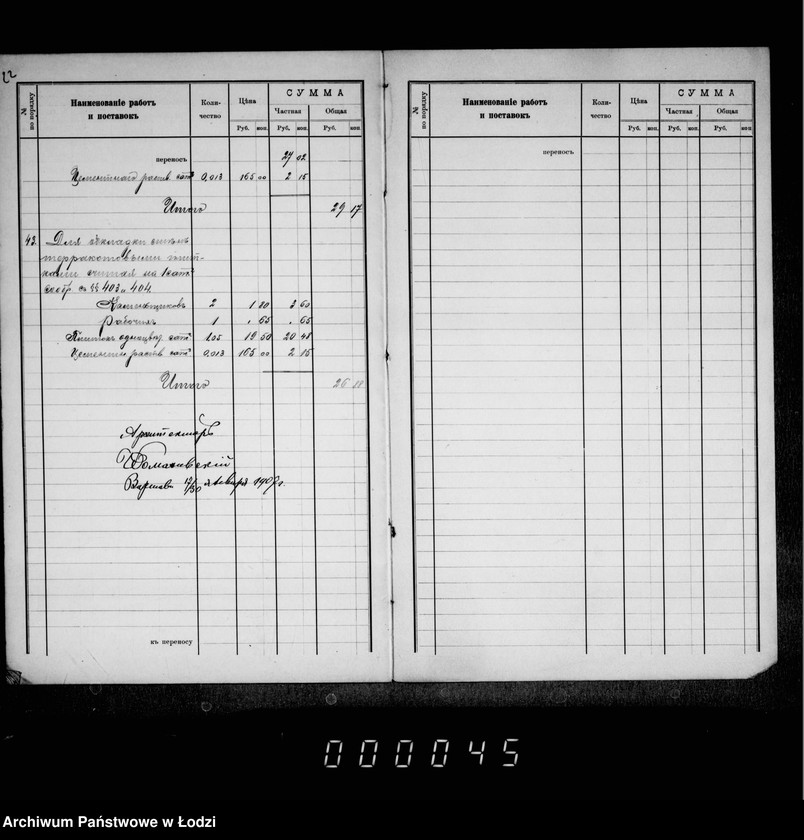 22
№ по порядку
Наименованіе работъ и поставокъ
Коли-чество
Цѣна
СУММА
Частная
Общая
Руб. коп. Руб. коп. Руб. коп.
переносъ 27 02
Цементнаго раств. саж. 0,013 165 00 2 15
Итого 29 17
43. Для обкладки стѣнъ
терракотовыми плит-
ками считая на 1 саж.
сообр. съ §§ 403 и 404
Каменьщиковъ 2 1 80 3 60
Рабочихъ 1 „ 65 „ 65
Плитокъ одноцвѣт. саж. 1,05 19 50 20 48
Цементн. раств. саж. 0,013 165 00 2 15
Итого 26 88
Архитекторъ
Варшава 17/30 января 1907 г.
къ переносу
№ по порядку
Наименованіе работъ и поставокъ
Коли-чество
Цѣна
СУММА
Частная
Общая
Руб. коп. Руб. коп. Руб. коп.
переносъ
къ переносу
000045
Archiwum Państwowe w Łodzi